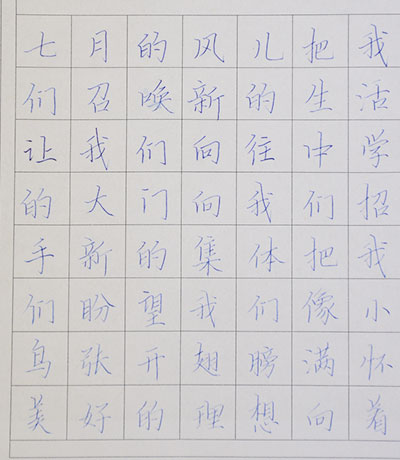 七月的风儿把我
们召唤新的生活
让我们向往中学
的大门向我们招
手新的集体把我
们盼望我们像小
鸟张开翅膀满怀
美好的理想向着